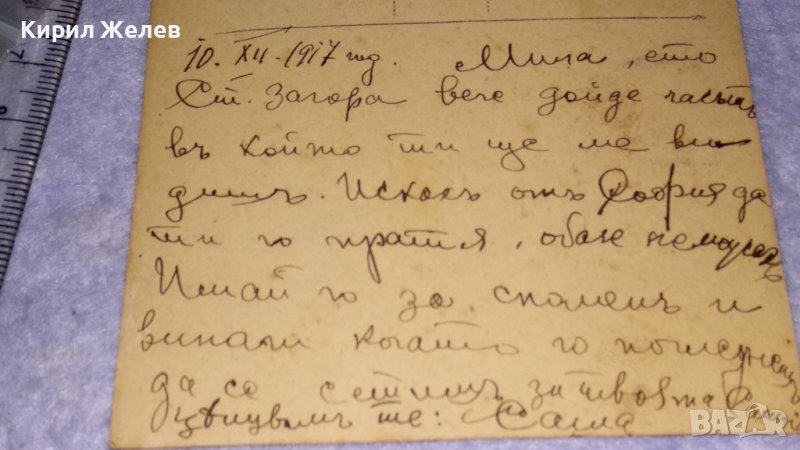 Кирил Желев
10. XII. 1917 год. Мила, ето
Ст. Загора вече дойде часътъ
въ който ти ще ме ви
дишъ. Искахъ отъ София да
ти го пратя, обаче неможахъ
Имай го за споменъ и
винаги когато го погледнешъ
да се сетишъ за твоята
цѣлувамъ те:
BAZAR